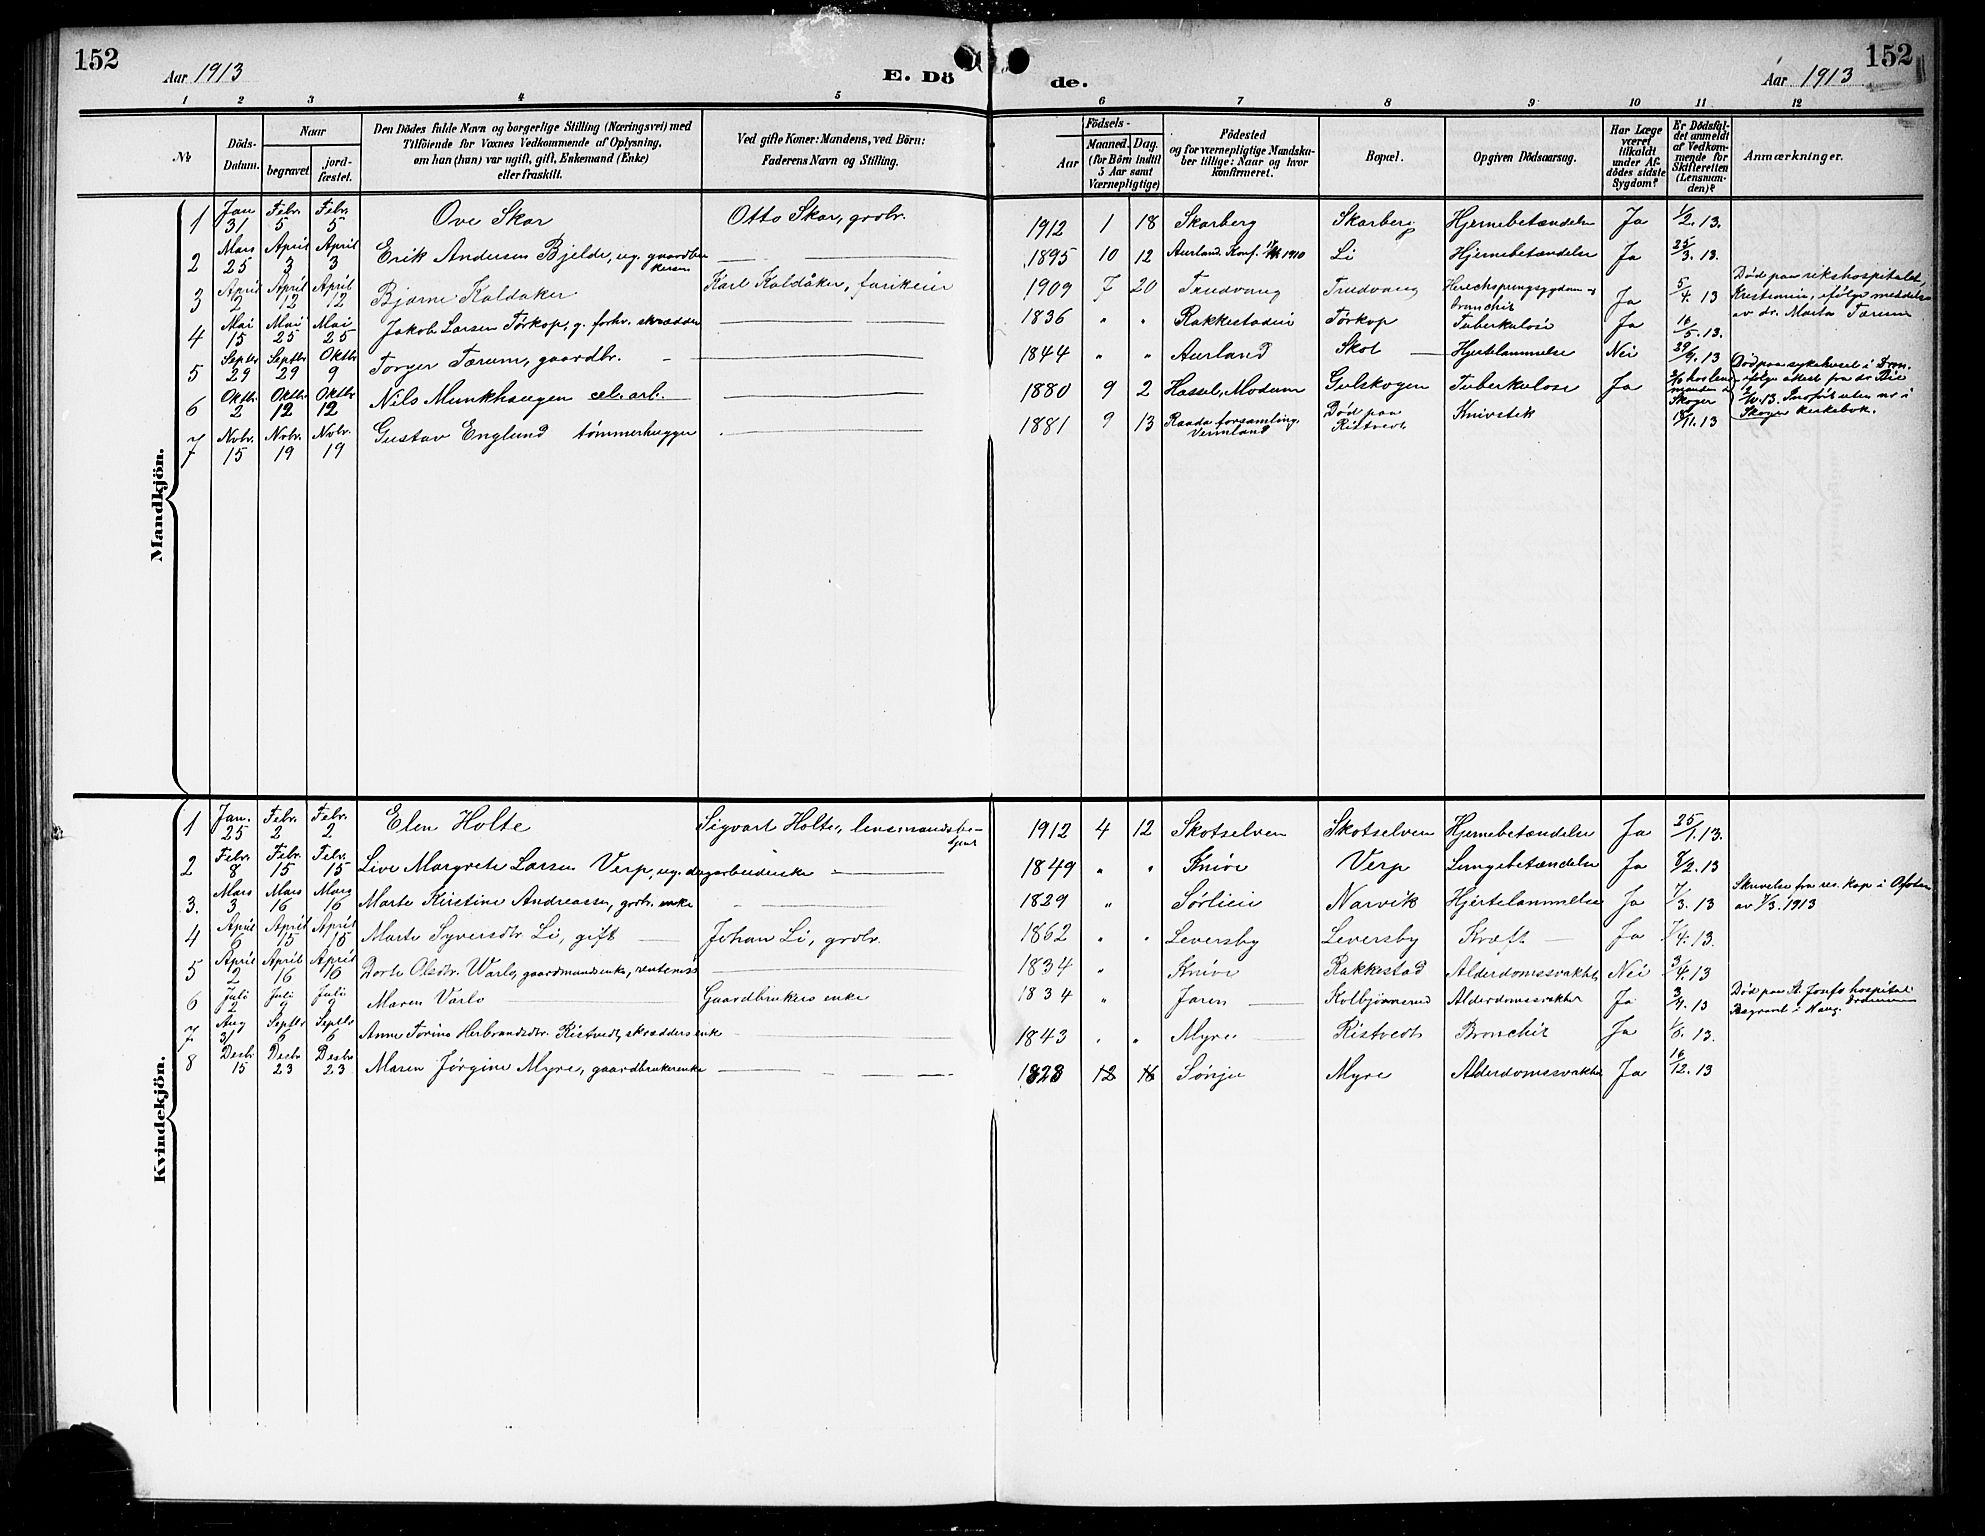 152
Aar 1913
E. Dö
de.
Aar 1913
152
1 2 3 4 5 6 7 8 9 10 11 12
№
Döds-
Datum.
Naar
begravet
jord-
fæstet.
Den Dödes fulde Navn og borgerlige Stilling (Næringsvei) med
Tilföiende for Voxnes Vedkommende af Oplysning,
om han (hun) var ugift, gift, Enkemand (Enke)
eller fraskilt.
Ved gifte Koner: Mandens, ved Börn:
Faderens Navn og Stilling.
Födsels-
Aar
Maaned. Dag.
(for Börn indtil
5 Aar samt
Værnepligtige)
Födested
og for værnepligtige Mandska-
ber tillige: Naar og hvor
konfirmeret.
Bopæl.
Opgiven Dödsaarsag.
Har Læge
været
tilkaldt
under Af-
dödes sidste
Sygdom?
Er Dödsfal-
det anmeldt
af Vedkom-
mende for
Skifteretten
(Lensman-
den)?
Anmærkninger.
Mandkjön.
1 Jan 31 Febr. 5 Febr. 5 Ove Skar Otto Skar, grdbr. 1912 1 18 Skarberg Skarberg Hjernebetændelse Ja 1/2. 13.
2 Mars 25 April 3 April 3 Erik Andersen Bjelde, ug. gaardbrukersøn 1895 10 12 Aurland. Konf. 1910 Li Hjernebetændelse Ja 25/3. 13.
3 April 2 April 12 April 12 Bjarne Koldaker Karl Koldåker, farikeier 1909 7 20 Trudvang Trudvang Herschsprungsygdom og bronchit Ja 5/4. 13 Död paa rikshospitalet,
Kristiania, ifølge meddelse
av dr. Marta Tærum
4 Mai 15 Mai 25 Mai 25 Jakob Larsen Törkop, g. forhv. skrædder 1836 " " Rakkestadei Törkop Tuberkulose Ja 16/5. 13.
5 Septbr 29 Septbr 29 Oktbr 9 Torger Tærum, gaardbr. 1844 " " Aurland Skol Hjertelammelse Nei 29/9. 13
6 Oktbr. 2 Oktbr 12 Oktbr 12 Nils Munkhaugen cel. arb. 1880 9 2 Hassel, Modum Gulskogen Tuberkulose Ja hos lensmanden i Skoger Död paa sykehuset i Dram.
ifølge attest fra dr. Bie
Indført uten nr i
Skoger kirkebok.
7 Novbr. 15 Novbr. 19 Novbr. 19 Gustav Englund tömmerhugger 1881 9 13 Raada forsamling, Vermland Död paa Ristvedt Knivstik 18/11. 13
Kvindekjön.
1 Jan. 25 Febr. 2 Febr. 2 Elen Holte Sigvart Holte, lensmandsbetjent 1912 4 12 Skotselven Skotselven Hjernebetændelse Ja 25/1. 13.
2 Febr. 8 Febr. 15 Febr. 15 Live Margrete Larsen Verp, ug. dagarbeiderske 1849 " " Knive Verp Lungebetændelse Ja 8/2. 13
3. Mars 3 Mars 16 Mars 16 Marte Kirstine Andreassen, grdbr. enke 1829 " Sörlieie Narvik Hjertelammelse Ja 7/3. 13 Skrivelse fra res. kap i Ofoten
av 7/3. 1913
4 April 6 April 15 April 15 Marte Syversdtr Li, gift Johan Li, grdbr. 1862 " " Leversby Leversby Kræft Ja 7/4. 13.
5 April 2 April 16 April 16 Dorte Olsdtr. Varlo, gaardmandsenke, rentenist 1834 " Knive Rakkestad Alderdomssvakhet Nei 3/4. 13
6 Juli 2 Juli Juli Maren Varlo Gaardbrukers enke 1834 " Jaren Kolbjörnerud Alderdomssvakhet Ja 3/7. 13 Död paa St. Josefs hospital
Drammen
Begravet i Haug.
7 Aug 31 Septbr 6 Septbr 6 Anne Torine Herbrandsdtr. Ristvedt, skrædders enke 1843 " " Myre Ristvedt Bronchit Ja 13.
8 Desbr 15 Desbr 23 Desbr 23 Maren Jörgine Myre, gaardbrukerenke 1828 12 Sönju Myre Alderdomssvakhet Ja 16/12. 13